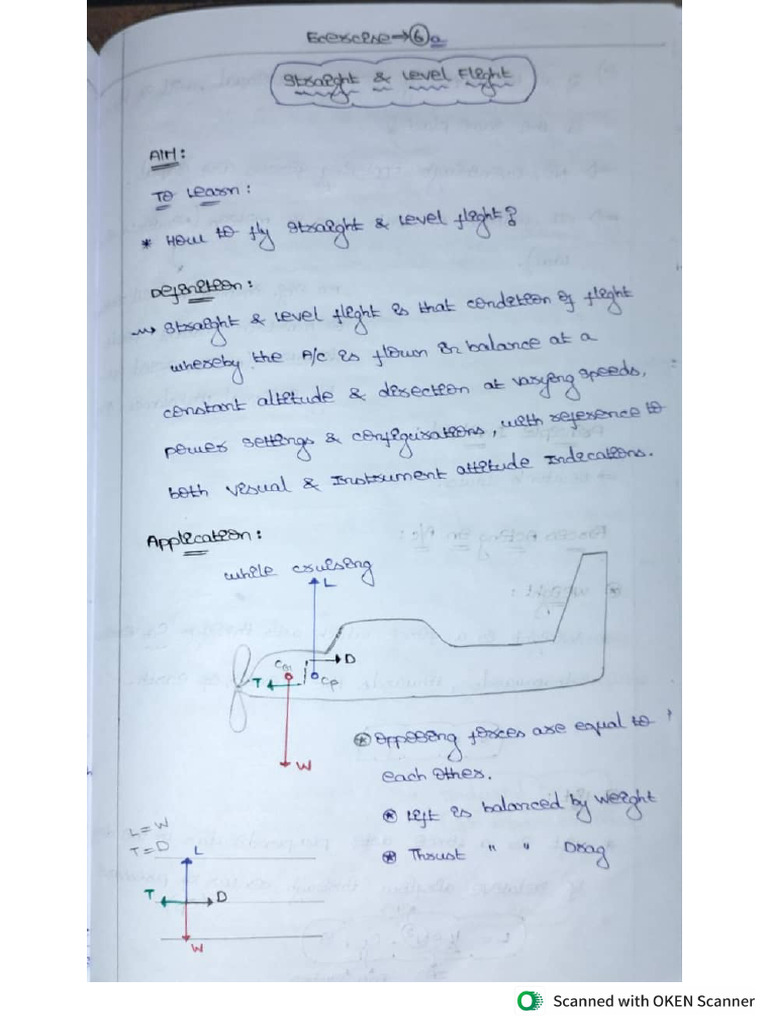 Exercise → 6 a
Straight & Level Flight
AIM:
To Learn:
* How to fly straight & level flight?
Definition:
Straight & level flight is that condition of flight
whereby the A/c is flown in balance at a
constant altitude & direction at varying speeds,
power settings & configurations, with reference to
both visual & instrument attitude indications.
Application:
while cruising
L
CG
D
T
CP
W
* Opposing forces are equal to
each other.
* Lift is balanced by weight
* Thrust " " Drag
L = W
T = D
L
T
D
W
Scanned with OKEN Scanner